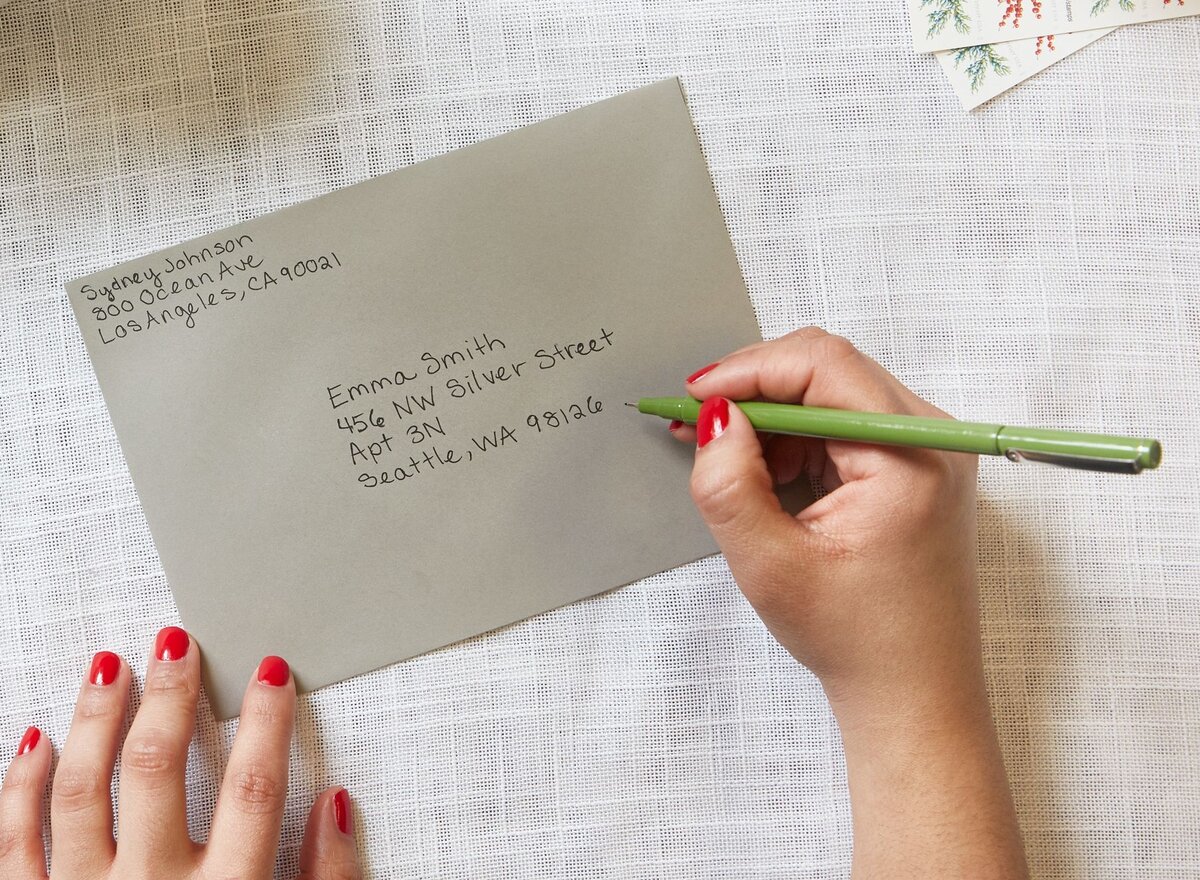 Sydney Johnson
800 Ocean Ave
Los Angeles, CA 90021
Emma Smith
456 NW Silver Street
Apt 3N
Seattle, WA 98126